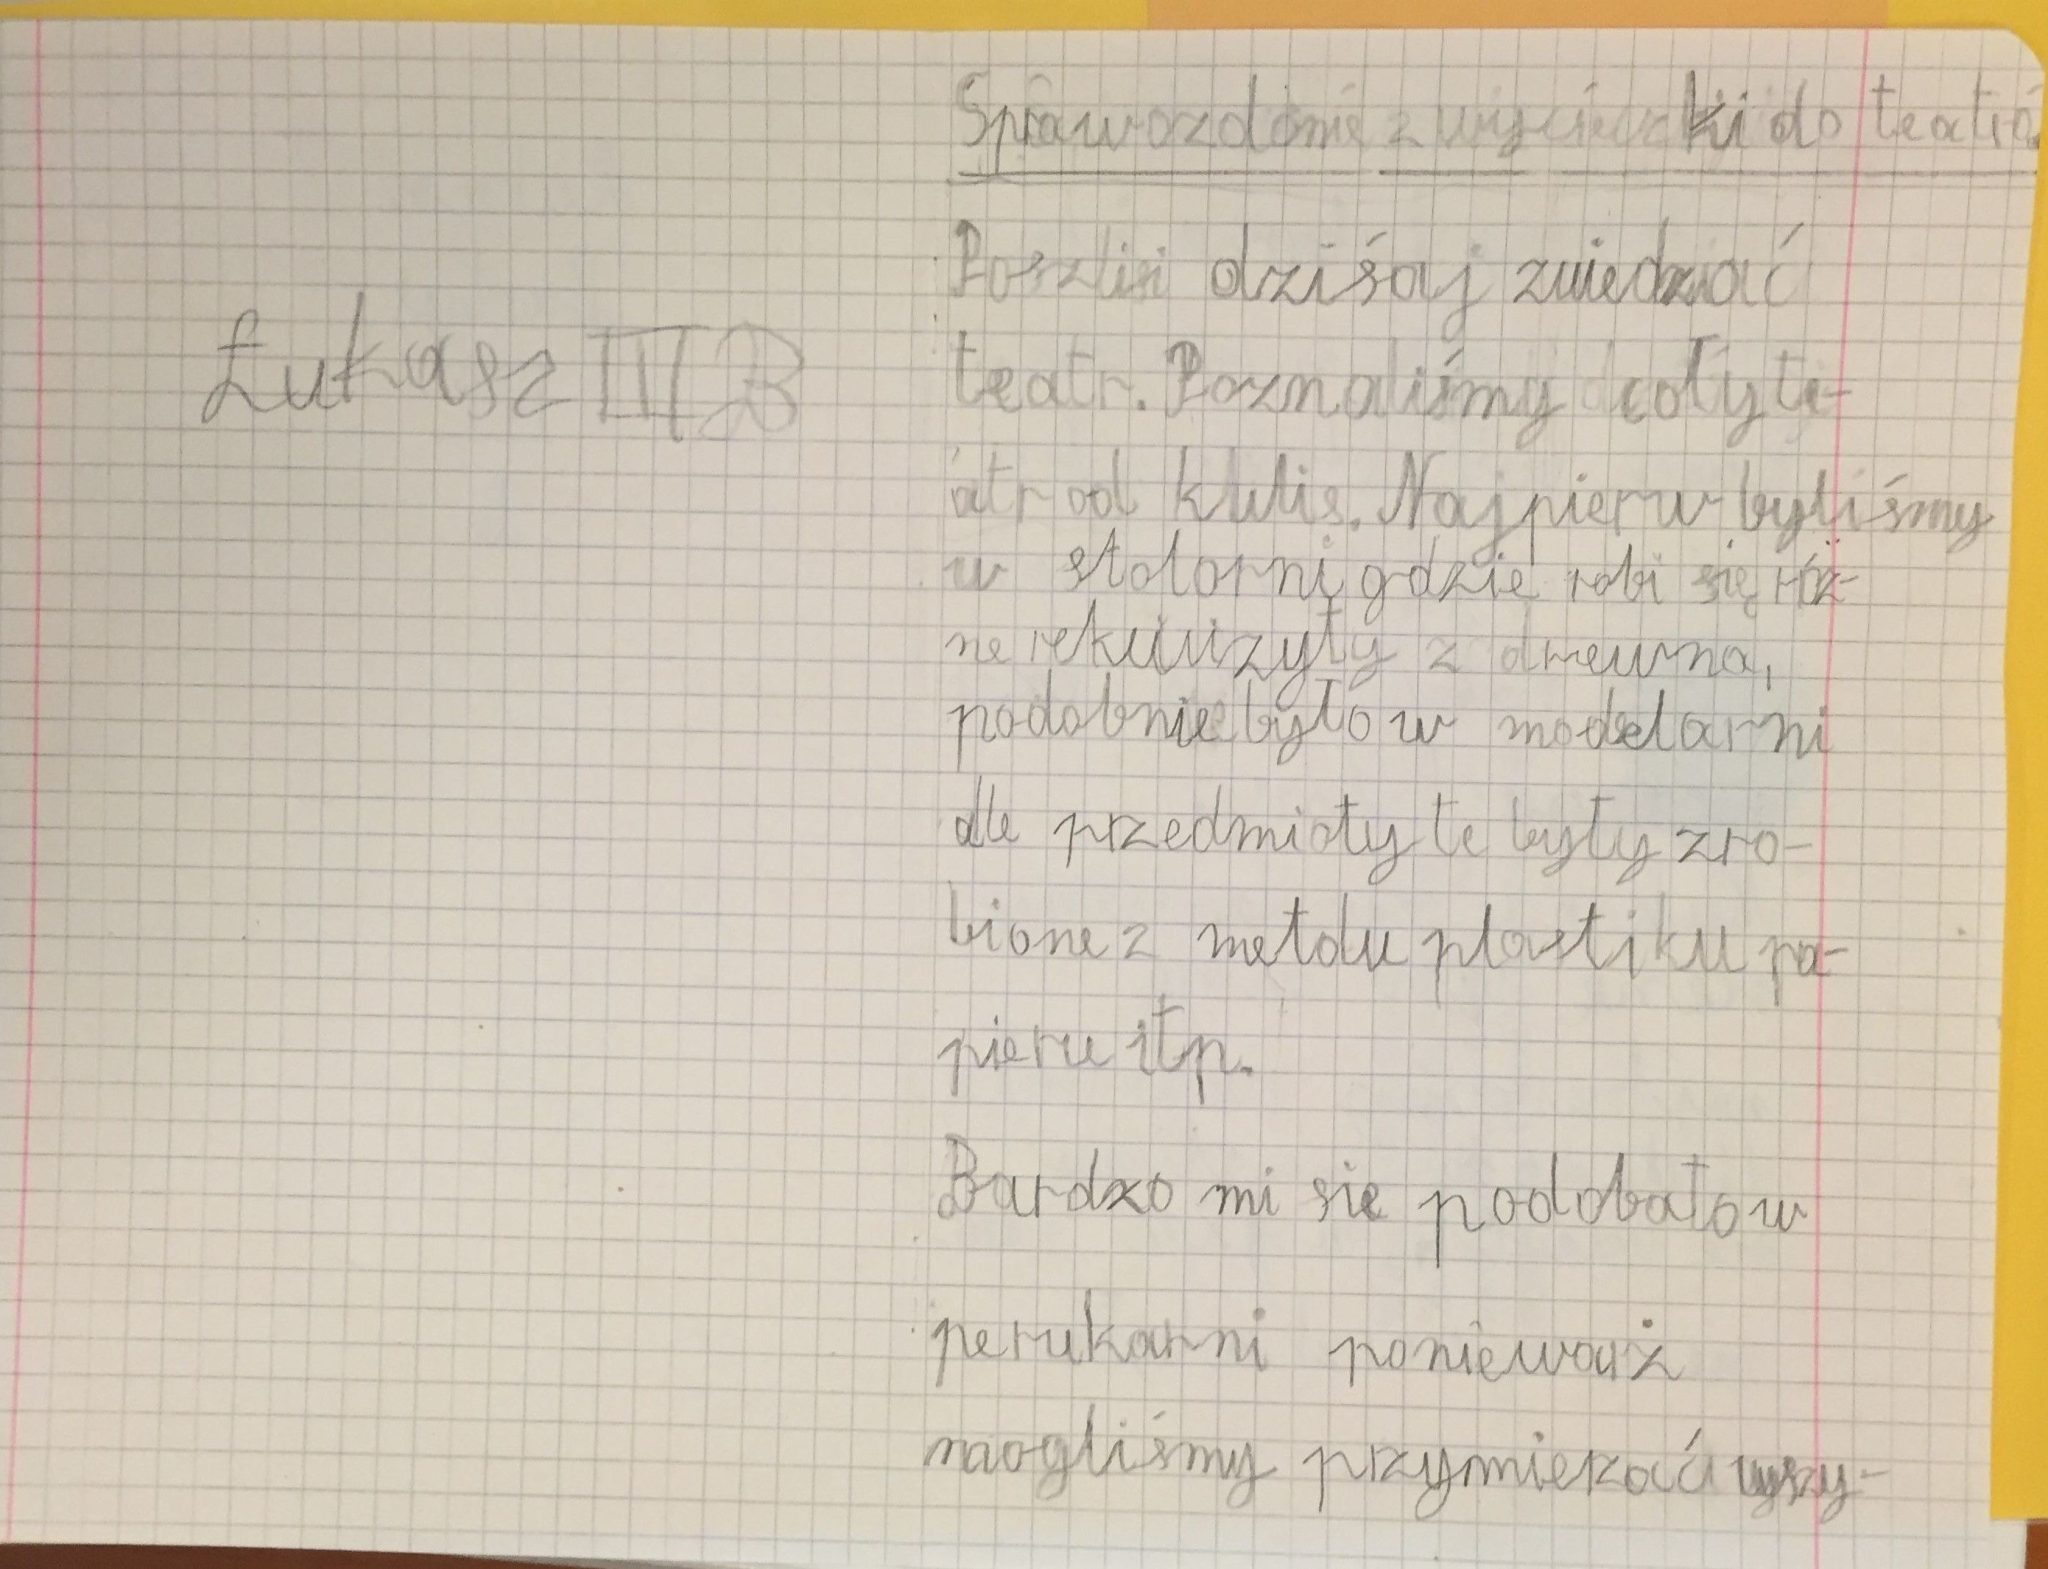 Sprawozdanie z wycieczki do teatró
Łukasz III B
Poszlisi dziśaj zwiedziać
teatr. Poznaliśmy cały te-
atr od kulis. Najpierw byliśmy
w stolarni gdzie robi się róż-
ne rekwizyty z drewna,
podobnie było w modelarni
ale przedmioty te były zro-
bione z metalu plastiku pa-
pieru itp.
Bardzo mi się podobało w
perukarni ponieważ
mogliśmy przymierzać